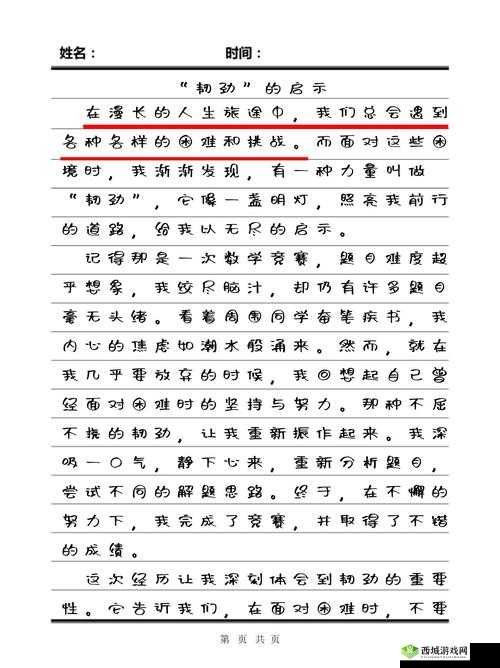 姓名： 时间：
“韧劲”的启示
在漫长的人生旅途中，我们总会遇到
各种各样的困难和挑战。而面对这些困
境时，我渐渐发现，有一种力量叫做
“韧劲”，它像一盏明灯，照亮我前行
的道路，给我以无尽的启示。
记得那是一次数学竞赛，题目难度超
乎想象，我绞尽脑汁，却仍有许多题目
毫无头绪。看着周围同学奋笔疾书，我
内心的焦虑如潮水般涌来。然而，就在
我几乎要放弃的时候，我回想起自己曾
经面对困难时的坚持与努力。那种不屈
不挠的韧劲，让我重新振作起来。我深
吸一口气，静下心来，重新分析题目，
尝试不同的解题思路。终于，在不懈的
努力下，我完成了竞赛，并取得了不错
的成绩。
这次经历让我深刻体会到韧劲的重要
性。它告诉我们，在面对困难时，不要
第 页 共 页
西城游戏网